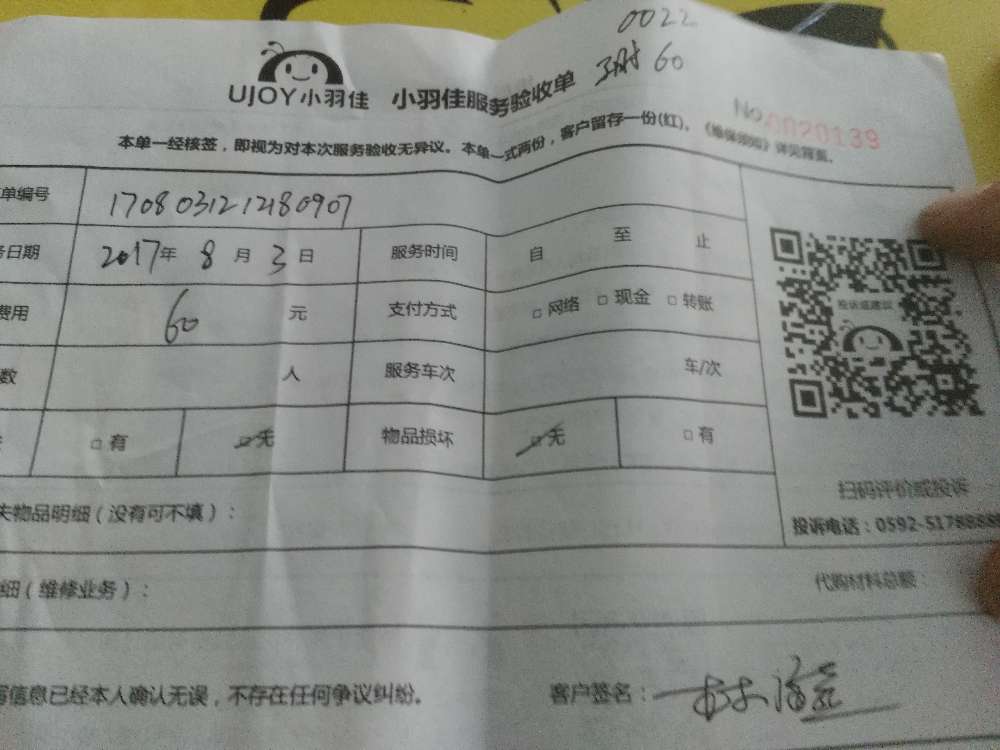 0022
60
UJOY小羽佳 小羽佳服务验收单
No 0020139
本单一经核签，即视为对本次服务验收无异议。本单一式两份，客户留存一份(红)。《维保须知》详见背面。
单编号 1708031212180907
务日期 2017年 8 月 3 日 服务时间 自 至 止
费用 60 元 支付方式 □ 网络 □ 现金 □ 转账
数 人 服务车次 车/次
□ 有 □ 无 物品损坏 □ 无 □ 有
投诉或建议
扫码评价或投诉
投诉电话：0592-5178888
失物品明细（没有可不填）：
细（维修业务）： 代购材料总额：
写信息已经本人确认无误，不存在任何争议纠纷。 客户签名：